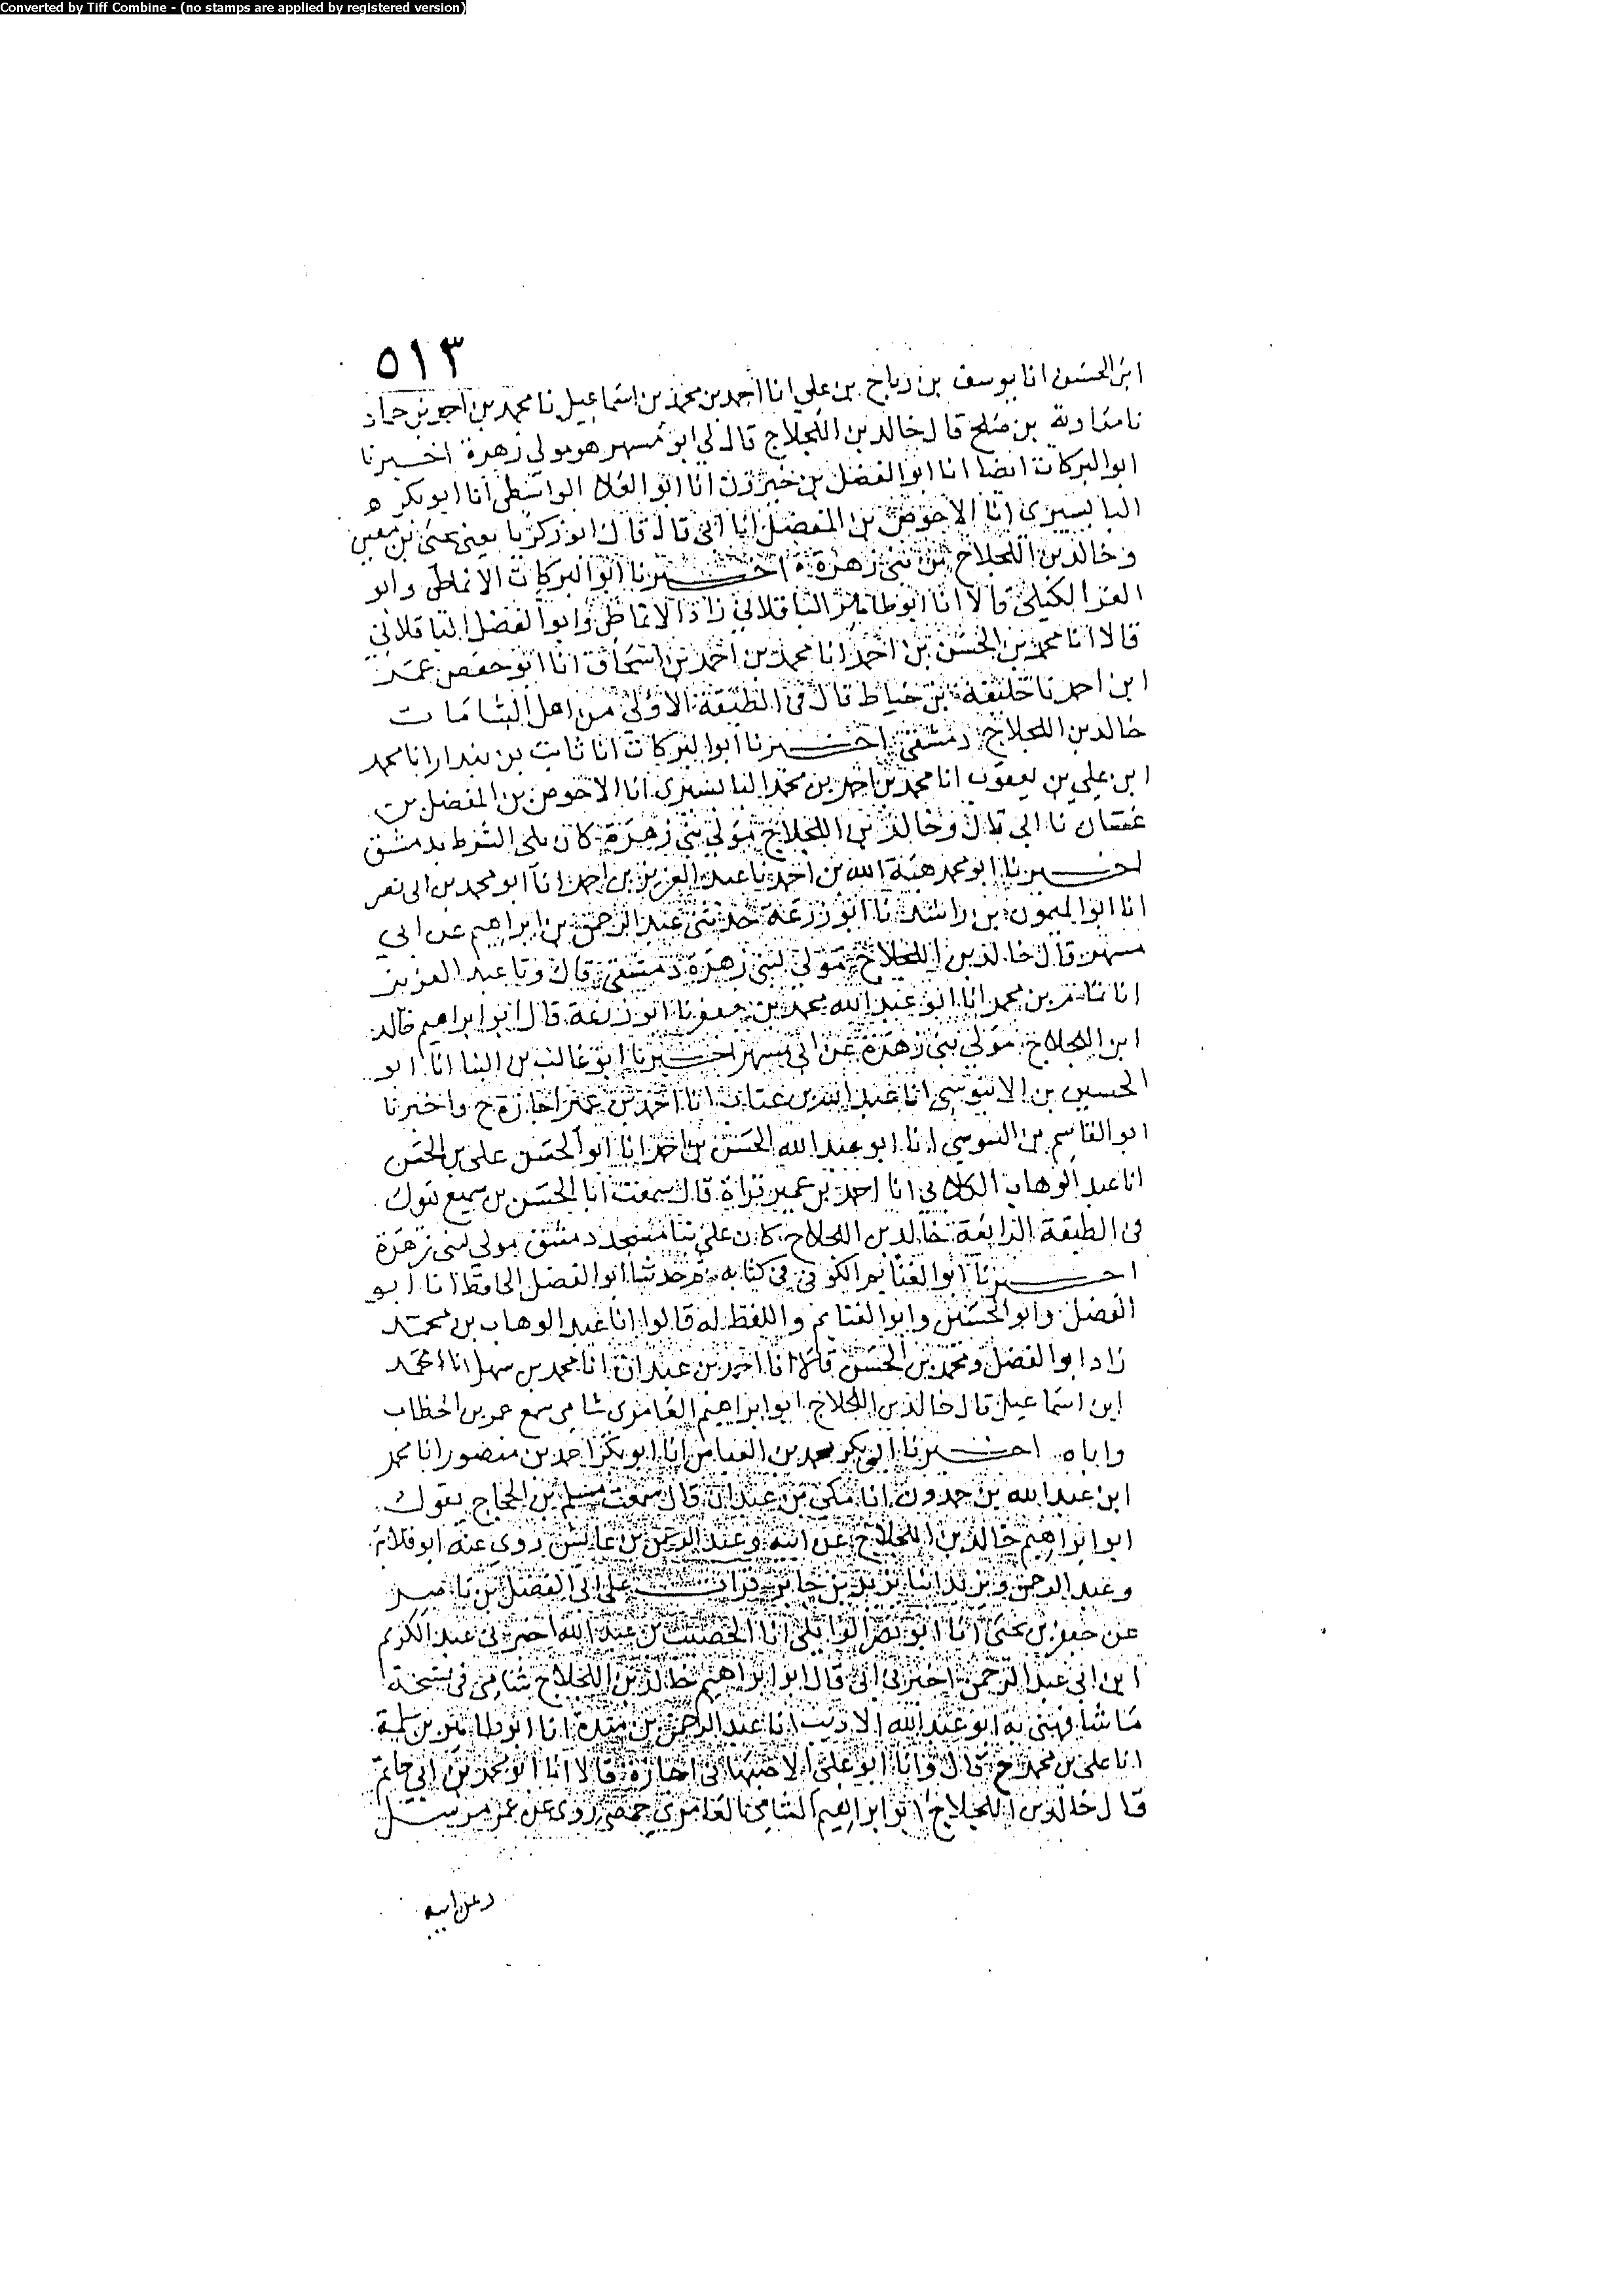 Converted by Tiff Combine - (no stamps are applied by registered version)
٥١٣
ابن الحسن انا يوسف بن رباح بن علي انا احمد بن محمد بن اسماعيل نا محمد بن احمد بن حماد
نا معاوية بن صلح قال خالد بن اللجلاج قال لي ابو مسهر هو مولى زهرة اخبرنا
ابو البركات ايضا انا ابو الفضل بن خيرون انا ابو العلا الواسطي انا ابو بكر
البابسيري انا الاحوص بن المفضل انا ابي قال قال ابو زكريا يعني يحيى بن معين
وخالد بن اللجلاج من بني زهرة اخبرنا ابو البركات الانماطي وابو
العز الكيلي قالا انا ابو طاهر الباقلاني زاد الانماطي وابو الفضل الباقلاني
قالا انا محمد بن الحسن بن احمد انا محمد بن احمد بن اسحاق انا ابو حفص عمر
ابن احمد نا خليفة بن خياط قال في الطبقة الاولى من اهل الشامات
خالد بن اللجلاج دمشقي اخبرنا ابو البركات انا ثابت بن بندار انا محمد
ابن علي بن يعقوب انا محمد بن احمد بن محمد البابسيري انا الاحوص بن المفضل بن
غسان نا ابي قال وخالد بن اللجلاج مولى بني زهرة كان يلي الشرط بدمشق
اخبرنا ابو محمد هبة الله بن احمد نا عبد العزيز بن احمد انا ابو محمد بن ابي نصر
انا ابو الميمون بن راشد نا ابو زرعة حدثني عبد الرحمن بن ابراهيم عن ابي
مسهر قال خالد بن اللجلاج مولى لبني زهرة دمشقي قال ونا عبد العزيز
انا تمام بن محمد انا ابو عبد الله محمد بن جعفر نا ابو زرعة قال ابو ابراهيم خالد
ابن اللجلاج مولى بني زهرة عن ابي مسهر اخبرنا ابو غالب بن البنا انا ابو
الحسين بن الابنوسي انا عبد الله بن عتاب انا احمد بن عمير اجازة ح واخبرنا
ابو القاسم بن السوسي انا ابو عبد الله الحسن بن احمد انا ابو الحسن علي بن الحسن
انا عبد الوهاب الكلابي انا احمد بن عمير قراة قال سمعت ابا الحسن بن سميع يقول
في الطبقة الرابعة خالد بن اللجلاج كان على بنا مسجد دمشق مولى لبني زهرة
اخبرنا ابو الغنايم الكوفي في كتابه ثم حدثنا ابو الفضل الحافظ انا ابو
الفضل وابو الحسين وابو الغنايم واللفظ له قالوا انا عبد الوهاب بن محمد
زاد ابو الفضل ومحمد بن الحسن قالا انا احمد بن عبدان انا محمد بن سهل انا محمد
ابن اسماعيل قال خالد بن اللجلاج ابو ابراهيم العامري شامي سمع عمر بن الخطاب
واباه اخبرنا ابو بكر محمد بن العباس انا ابو بكر احمد بن منصور انا محمد
ابن عبد الله بن حمدون انا مكي بن عبدان قال سمعت مسلم بن الحجاج يقول
ابو ابراهيم خالد بن اللجلاج عن ابيه وعبد الرحمن بن عايش روى عنه ابو قلابة
وعبد الرحمن ويزيد ابنا يزيد بن جابر قرات على ابي الفضل بن ناصر
عن جعفر بن يحيى انا ابو نصر الوايلي انا الخصيب بن عبد الله اخبرني عبد الكريم
ابن ابي عبد الرحمن اخبرني ابي قال ابو ابراهيم خالد بن اللجلاج شامي في نسخة
ما شافهني به ابو عبد الله الاديب انا عبد الرحمن بن مندة انا ابو طاهر بن سلمة
انا علي بن محمد ح قال وانا ابو علي الاصبهاني اجازة قالا انا ابو محمد بن ابي حاتم
قال خالد بن اللجلاج ابو ابراهيم الشامي العامري حمصي روى عن عمر مرسل
وعن ابيه